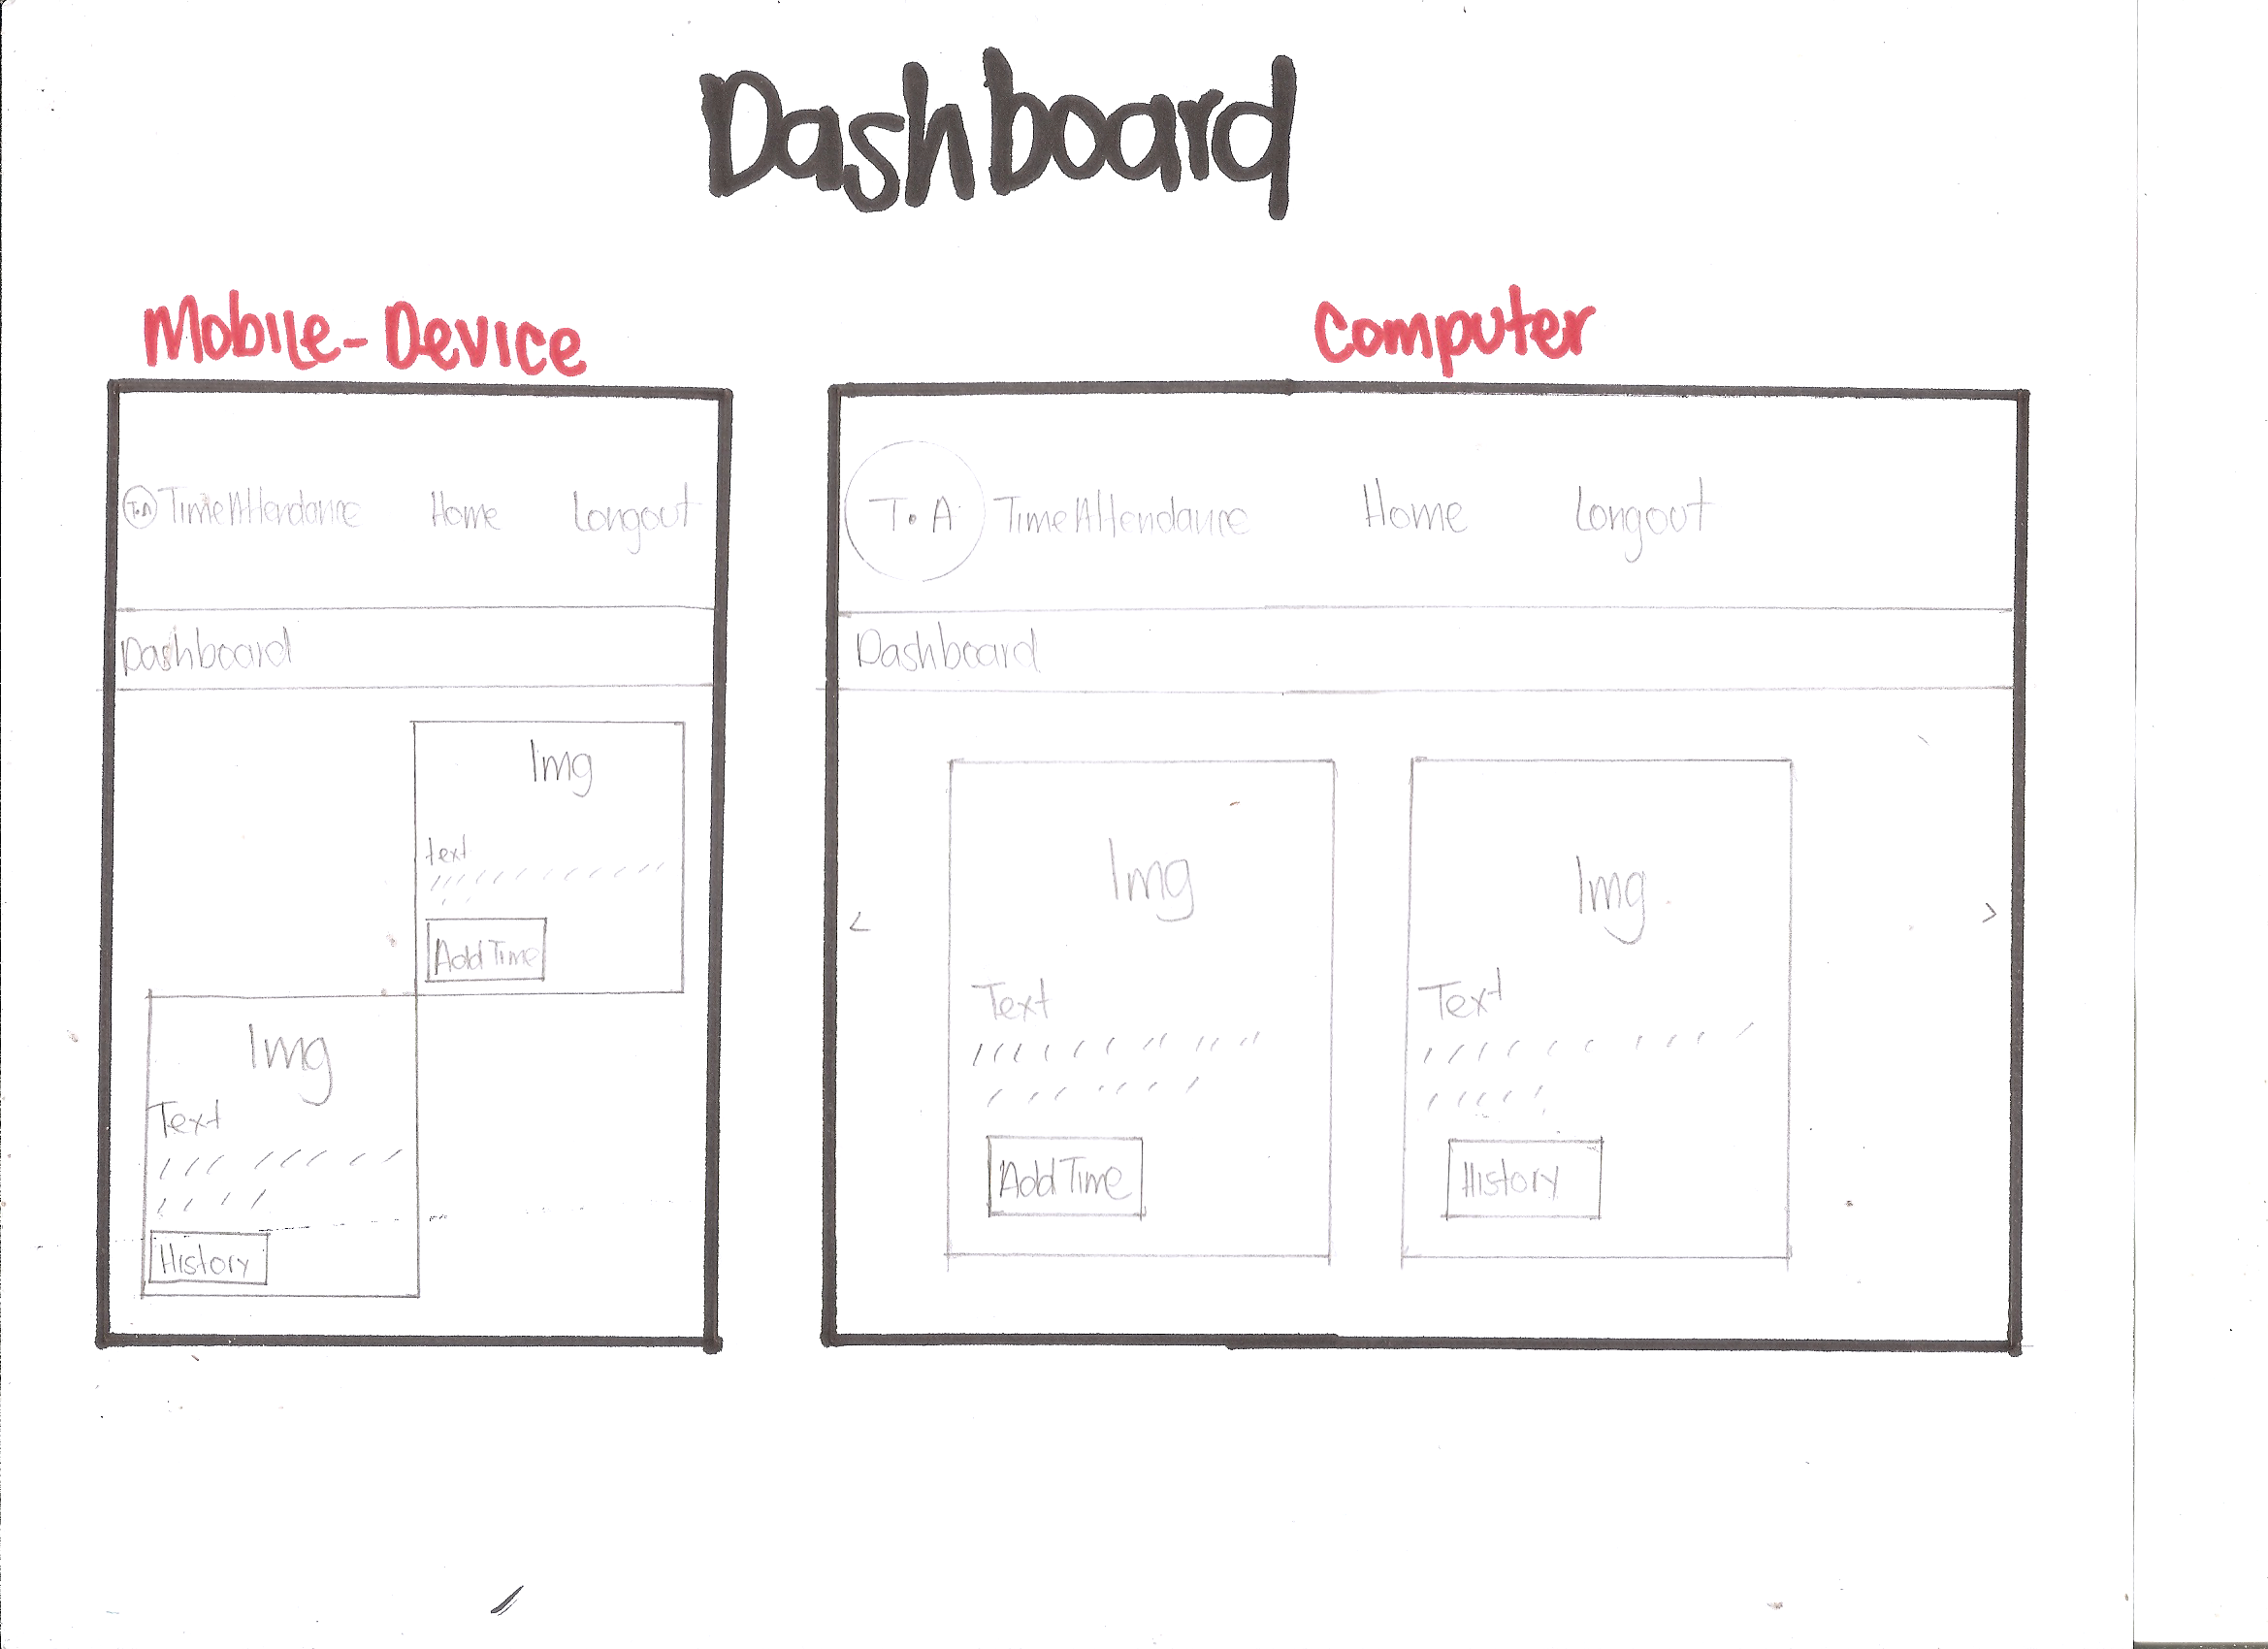 Dashboard
Mobile-Device
T.A TimeAttendance Home Longout
Dashboard
Img
text
Add Time
Img
Text
History
Computer
T.A TimeAttendance Home Longout
Dashboard
< >
Img
Text
Add Time
Img
Text
History